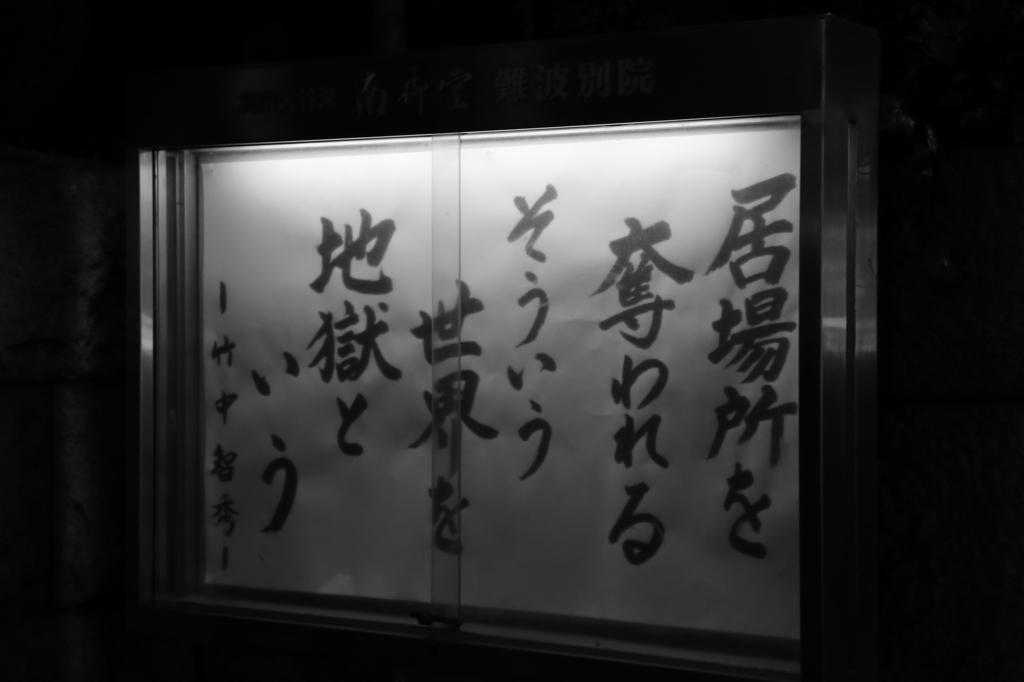 南御堂 難波別院
居場所を
奪われる
そういう
世界を
地獄と
いう
ー竹中智秀ー